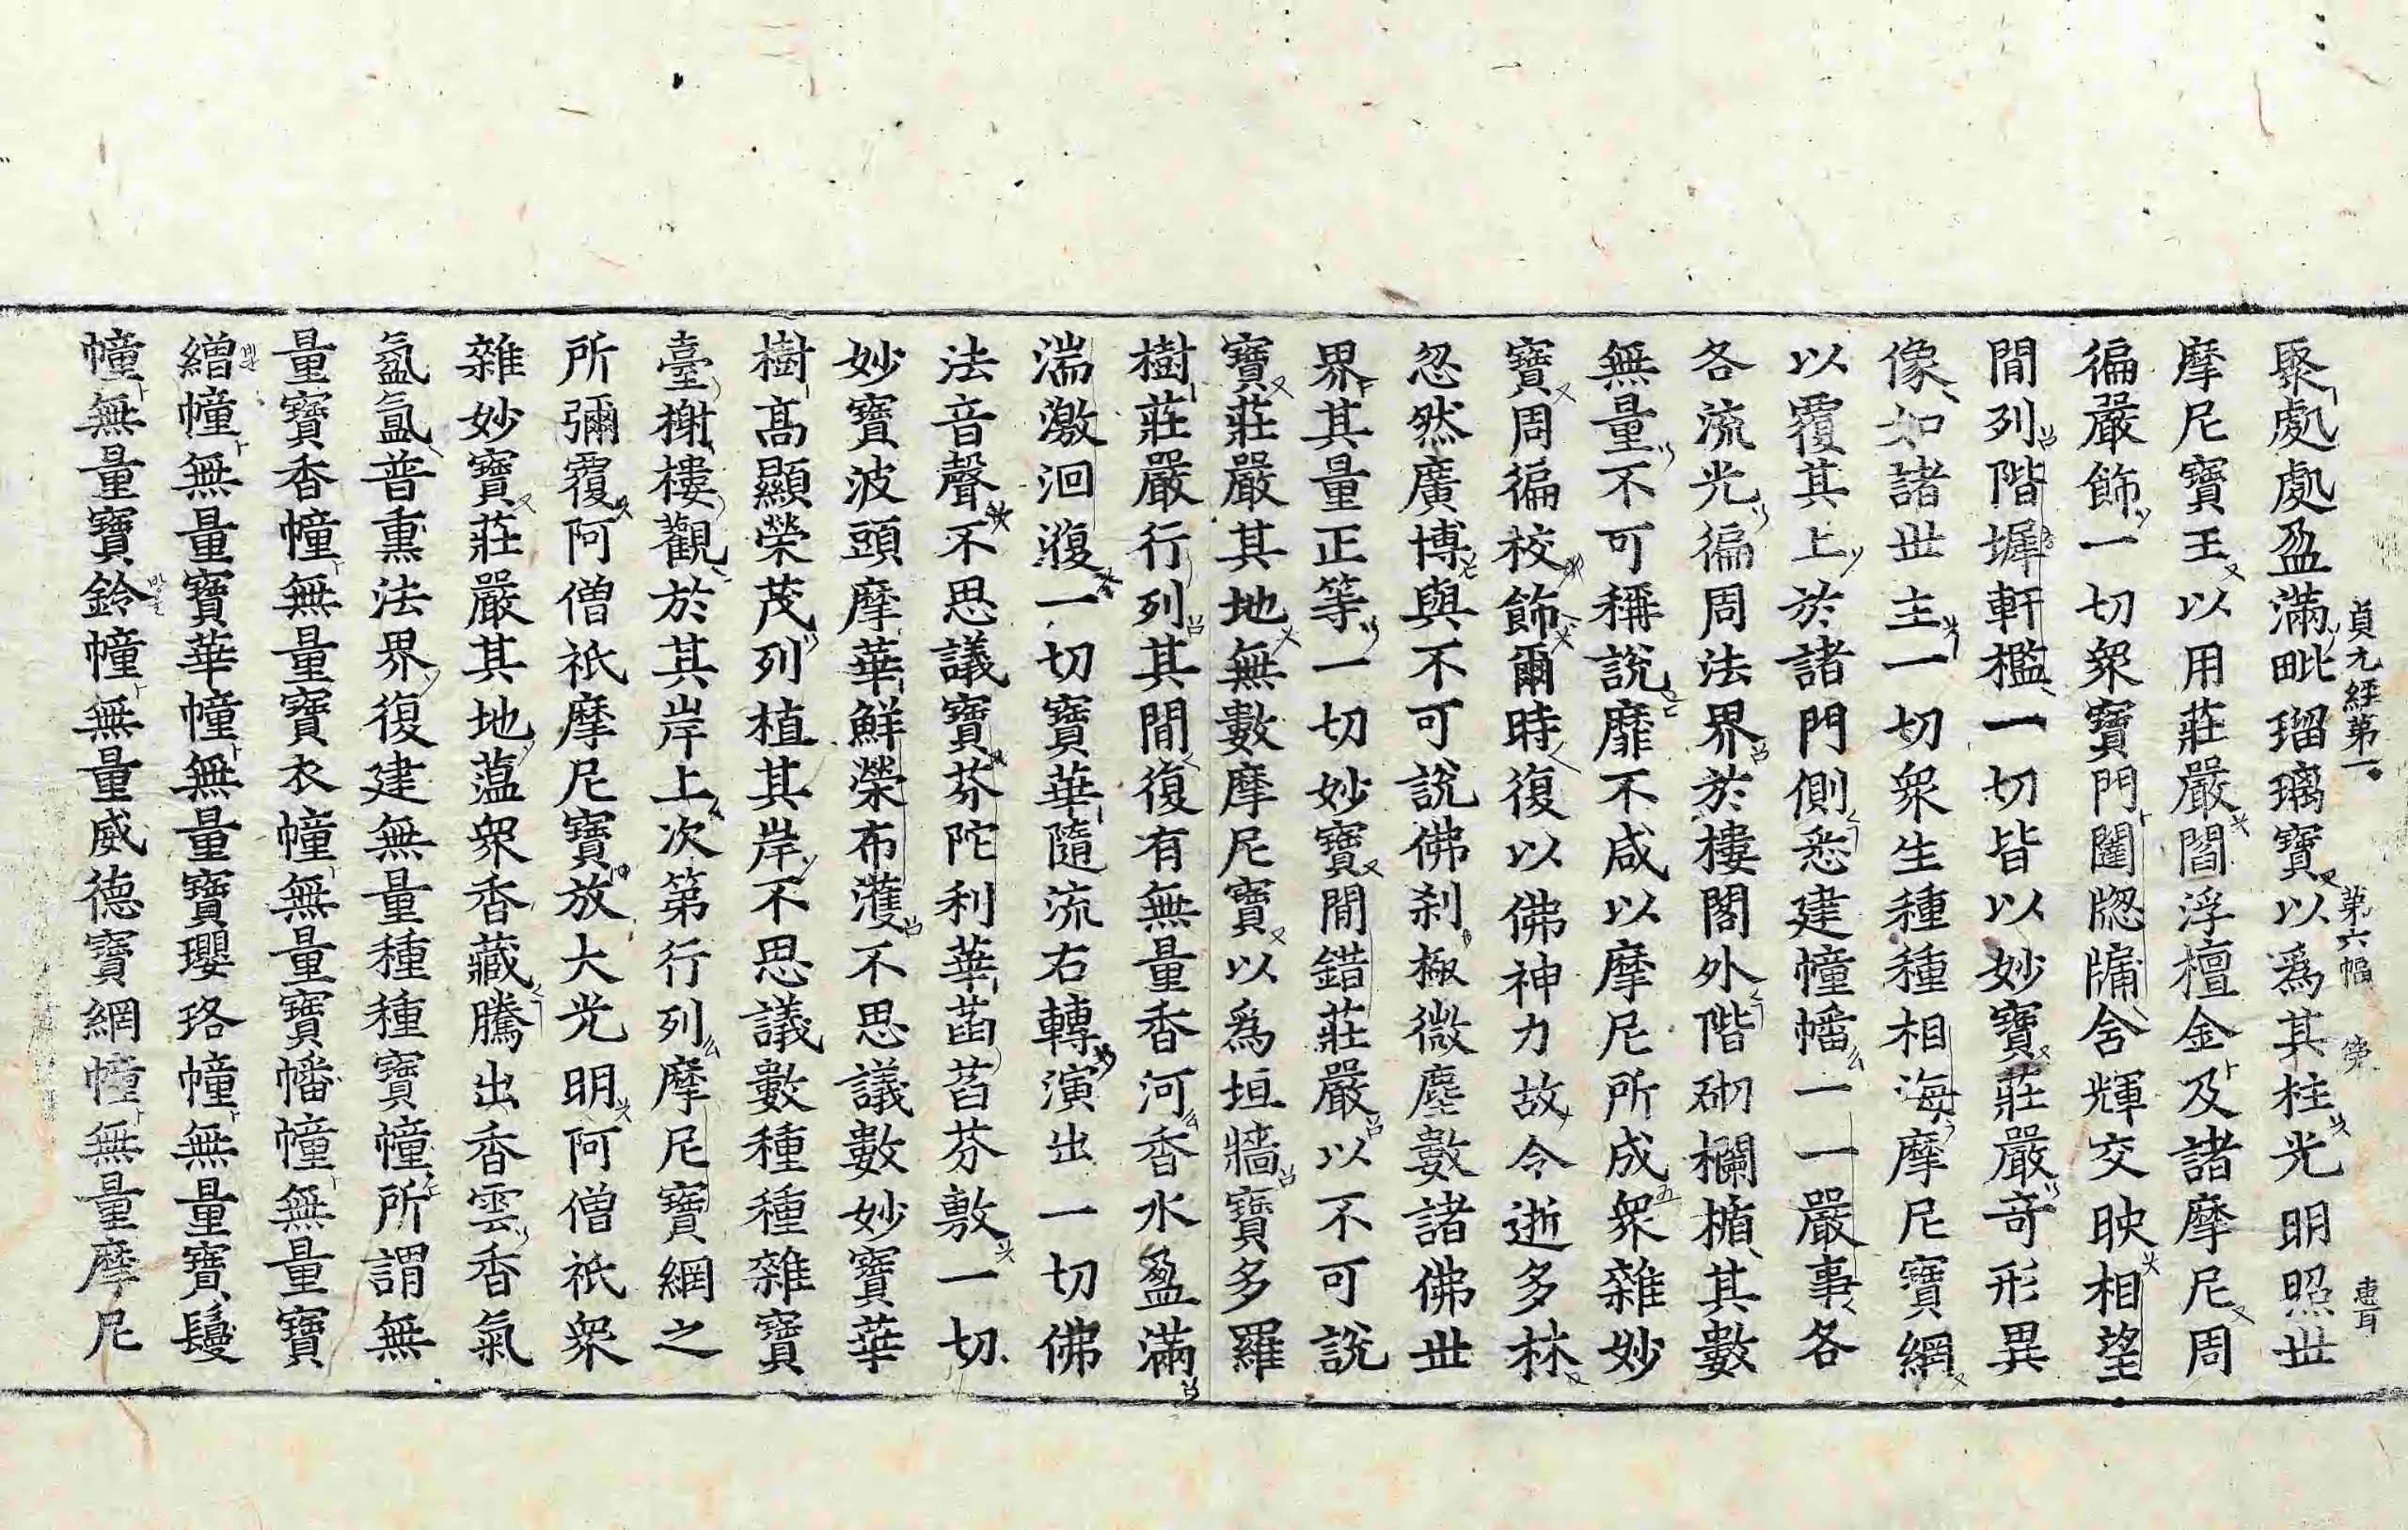 貞元經第一 第六幅 
聚處處盈滿毗瑠璃寶以爲其柱光明照世
摩尼寶王以用莊嚴閻浮檀金及諸摩尼周
徧嚴飾一切衆寶門闥牕牖舍輝交映相望
間列階墀軒檻一切皆以妙寶莊嚴奇形異
像如諸世主一切衆生種種相海摩尼寶網
以覆其上於諸門側悉建幢幡一一嚴事各
各流光徧周法界於樓閣外階砌欄楯其數
無量不可稱說靡不咸以摩尼所成衆雜妙
寶周徧校飾爾時復以佛神力故令逝多林
忽然廣博與不可說佛刹極微塵數諸佛世
界其量正等一切妙寶間錯莊嚴以不可說
寶莊嚴其地無數摩尼寶以爲垣牆寶多羅
樹莊嚴行列其間復有無量香河香水盈滿
湍激洄澓一切寶華隨流右轉演出一切佛
法音聲不思議寶芬陀利華菡萏芬敷一切
妙寶波頭摩華鮮榮布濩不思議數妙寶華
樹高顯榮茂列植其岸不思議數種種雜寶
臺榭樓觀於其岸上次第行列摩尼寶網之
所彌覆阿僧祇摩尼寶放大光明阿僧祇衆
雜妙寶莊嚴其地薀衆香藏騰出香雲香氣
氤氳普熏法界復建無量種種寶幢所謂無
量寶香幢無量寶衣幢無量寶幡幢無量寶
繒幢無量寶華幢無量寶瓔珞幢無量寶鬘
幢無量寶鈴幢無量威德寶網幢無量摩尼